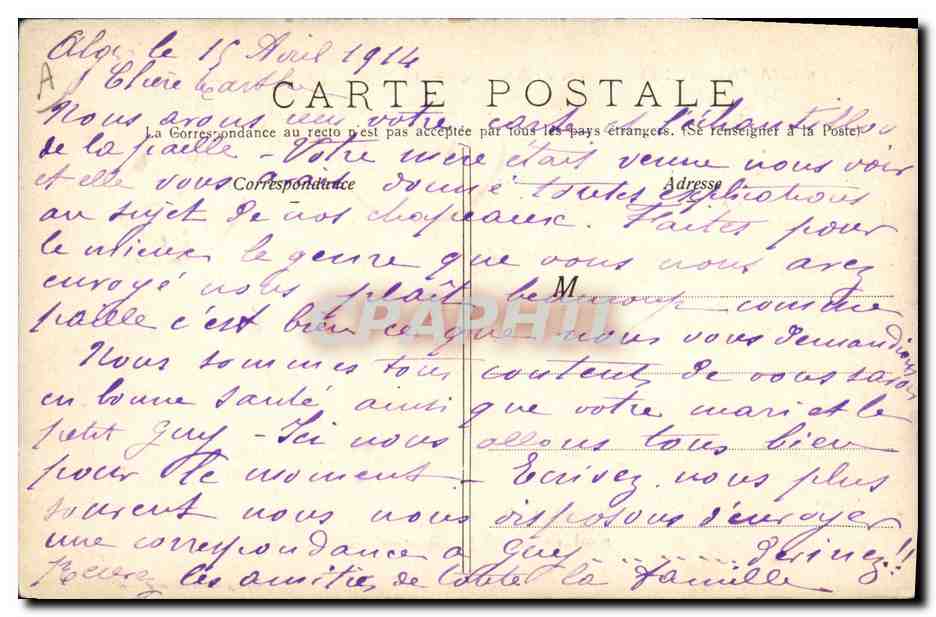 Alger le 15 Avril 1914
A
Chère Marthe
CARTE POSTALE
Nous avons reçu votre carte et l'échantillon
La Correspondance au recto n'est pas acceptée par tous les pays étrangers. (Se renseigner à la Poste)
de la paille - Votre mère était venue nous voir
et elle vous avait donné toutes explications
Correspondance Adresse
au sujet de nos chapeaux. Faites pour
le mieux le genre que vous nous avez
M
envoyé nous plaît beaucoup comme
paille c'est bien ce que nous vous demandions
CPAPHIL
Nous sommes tous contents de vous savoir
en bonne santé ainsi que votre mari et le
petit Guy - Ici nous allons tous bien
pour le moment - Ecrivez nous plus
souvent nous nous disposons d'envoyer
une correspondance à Guy ........ devinez!!
Recevez les amitiés de toute la famille